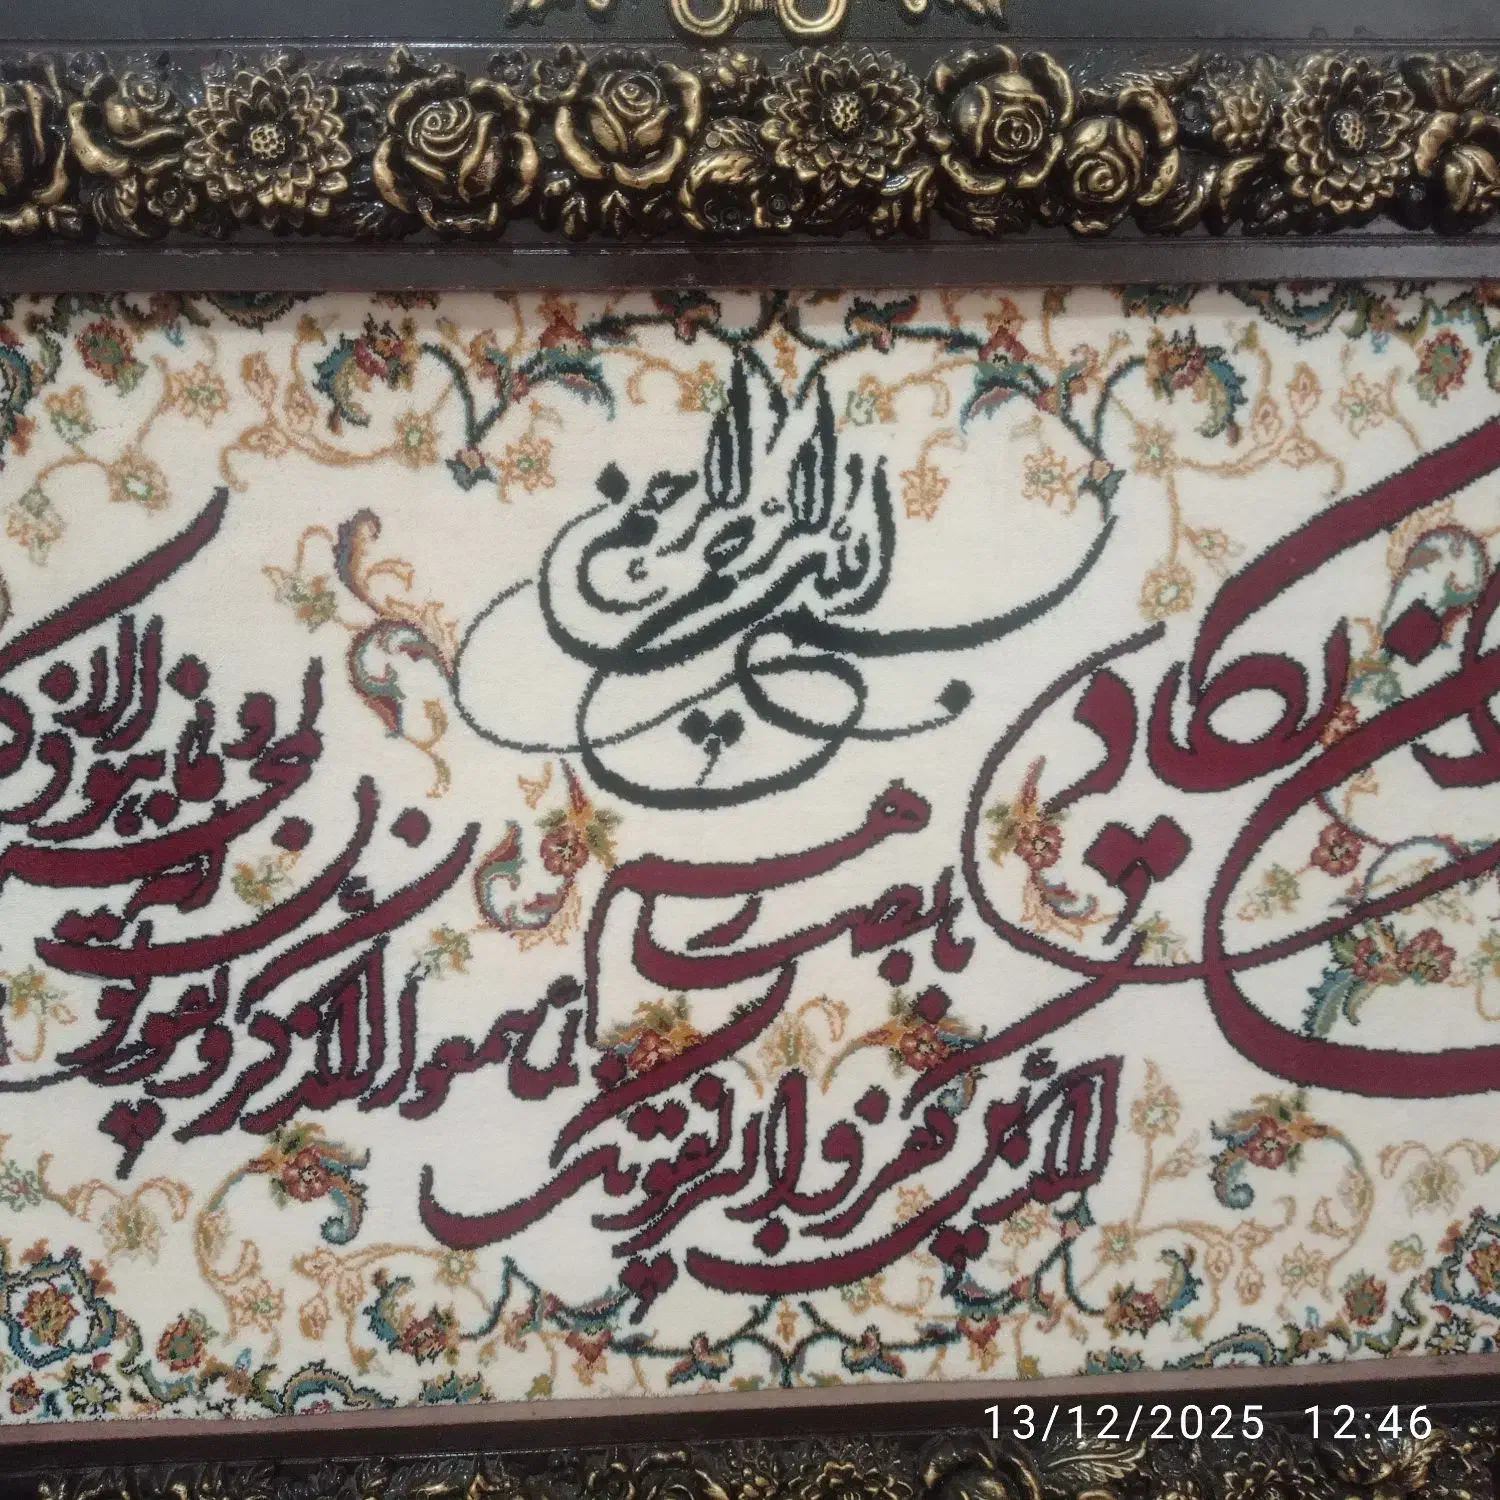 بسم الله الرحمن الرحیم
وان یکاد
الذین کفروا لیزلقونک
بابصارهم
لما سمعوا الذکر و یقولون
انه لمجنون
و ما هو الا ذکر
13/12/2025 12:46